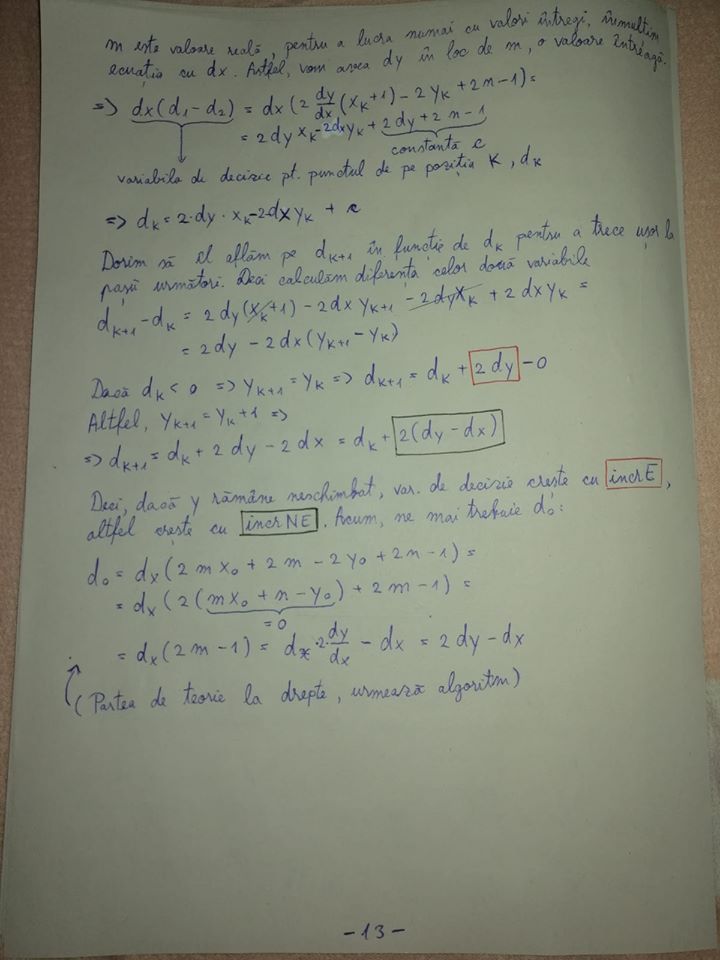 m este valoare reală, pentru a lucra numai cu valori întregi, înmulțim
ecuația cu dx. Astfel, vom avea dy în loc de m, o valoare întreagă.
=> dx(d₁-d₂) = dx(2 dy/dx (xₖ+1) - 2yₖ + 2n-1) =
= 2dy xₖ - 2dx yₖ + 2dy + 2n-1
constantă c
variabila de decizie pt. punctul de pe poziția K, dₖ
=> dₖ = 2·dy·xₖ - 2dx yₖ + c
Dorim să îl aflăm pe dₖ₊₁ în funcție de dₖ pentru a trece ușor la
pașii următori. Deci calculăm diferența celor două variabile
dₖ₊₁ - dₖ = 2dy(xₖ+1) - 2dx yₖ₊₁ - 2dy xₖ + 2dx yₖ =
= 2dy - 2dx(yₖ₊₁ - yₖ)
Dacă dₖ < 0 => yₖ₊₁ = yₖ => dₖ₊₁ = dₖ + 2dy - 0
Altfel, yₖ₊₁ = yₖ + 1 =>
=> dₖ₊₁ = dₖ + 2dy - 2dx = dₖ + 2(dy - dx)
Deci, dacă y rămâne neschimbat, var. de decizie crește cu incrE,
altfel crește cu incrNE. Acum, ne mai trebuie d₀:
d₀ = dx(2mx₀ + 2m - 2y₀ + 2n-1) =
= dx(2(mx₀ + n - y₀) + 2m-1) =
= 0
= dx(2m-1) = dx·2·dy/dx - dx = 2dy - dx
(Partea de teorie la drepte, urmează algoritm)
-13-